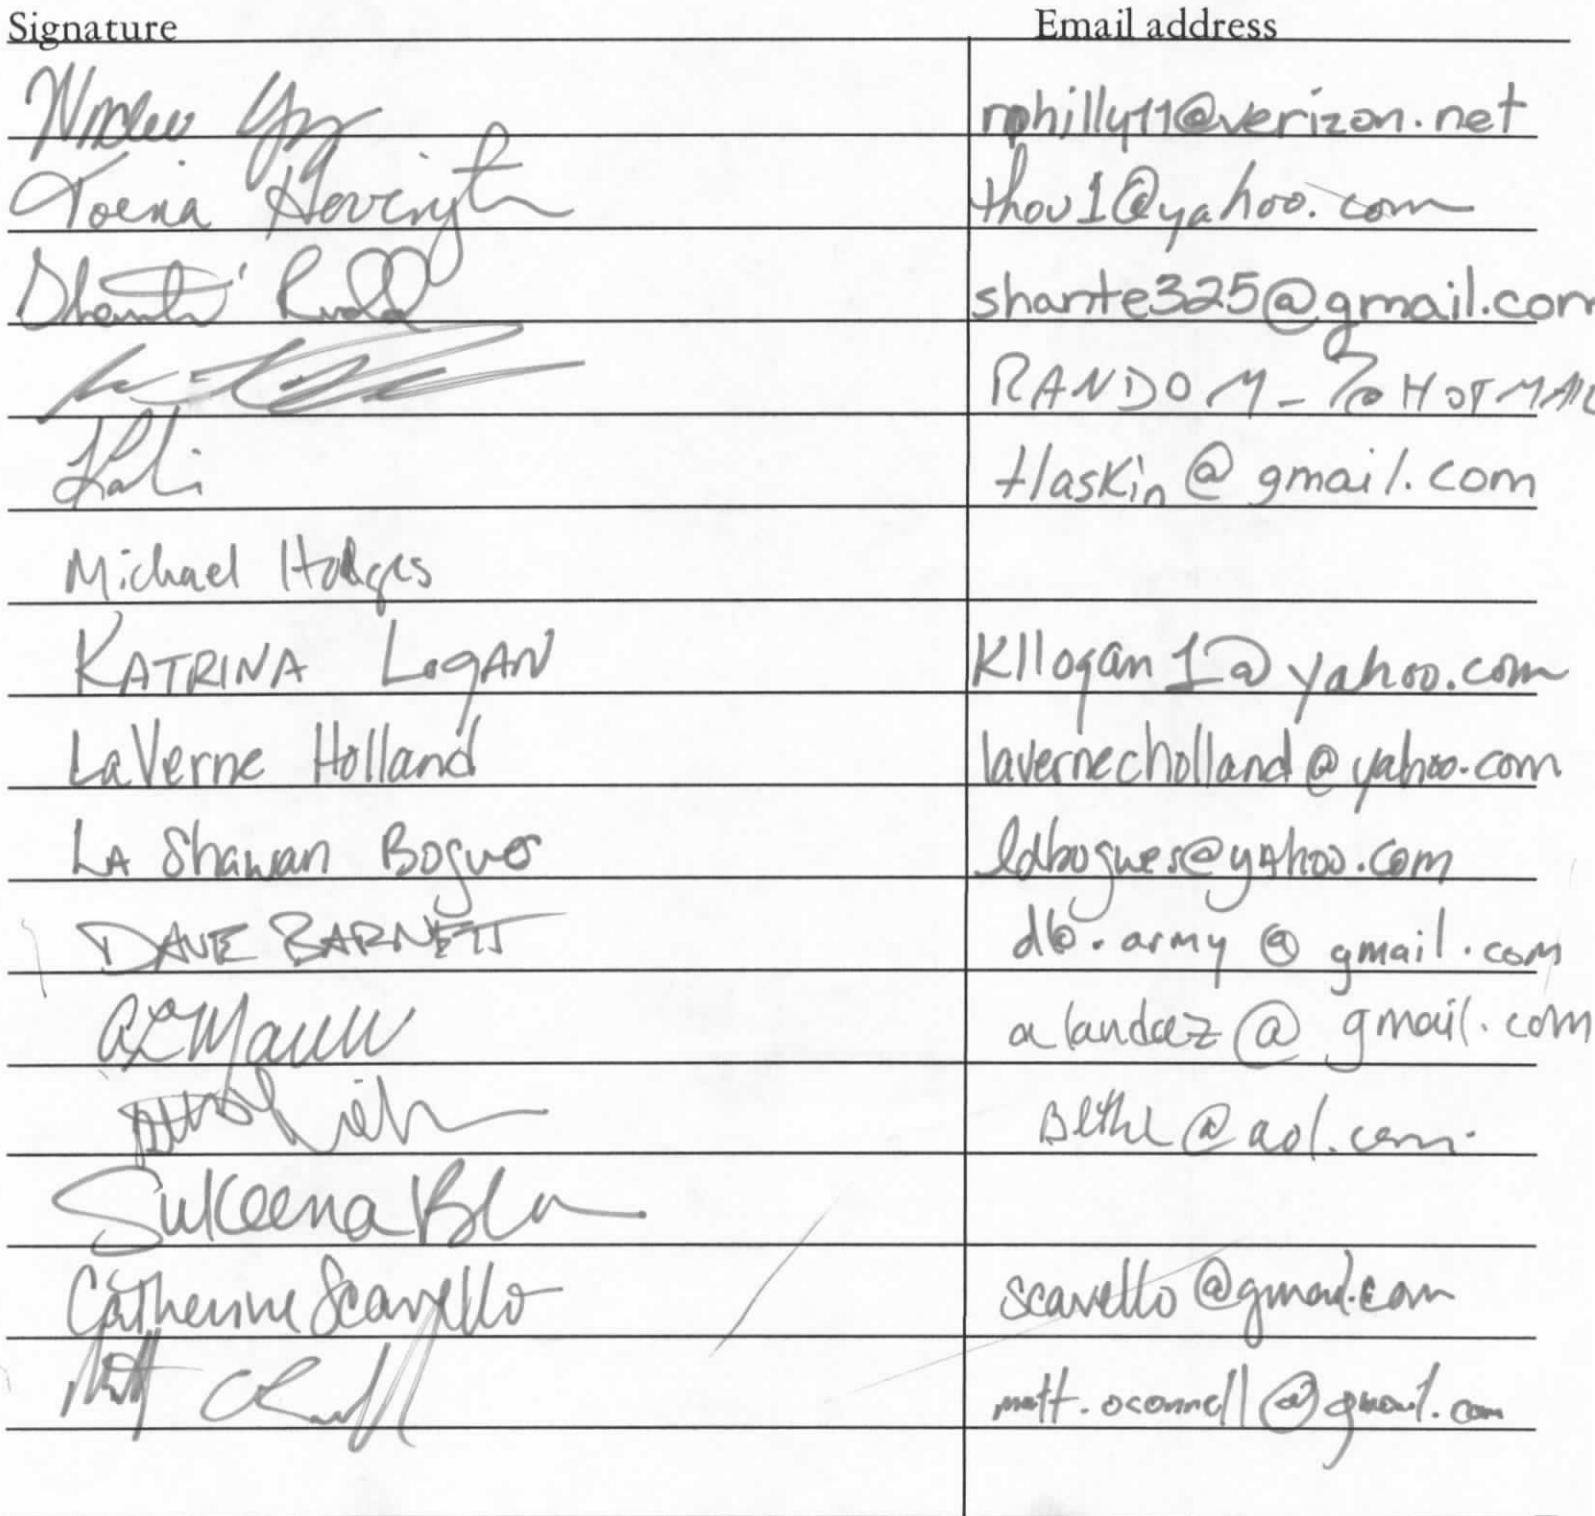 Signature Email address
rphilly11@verizon.net
Toena Hovington thou1@yahoo.com
Shanté Rudd shante325@gmail.com
RANDOM_7@HOTMAIL
tlaskin@gmail.com
Michael Hodges
KATRINA LOGAN Kllogan1@yahoo.com
LaVerne Holland lavernecholland@yahoo.com
LA Shawan Bogues ldbogues@yahoo.com
DAVE BARNETT db.army@gmail.com
alandaz@gmail.com
@aol.com
Sukeena
Catherine Scavello scavello@gmail.com
Matt matt.oconnell@gmail.com